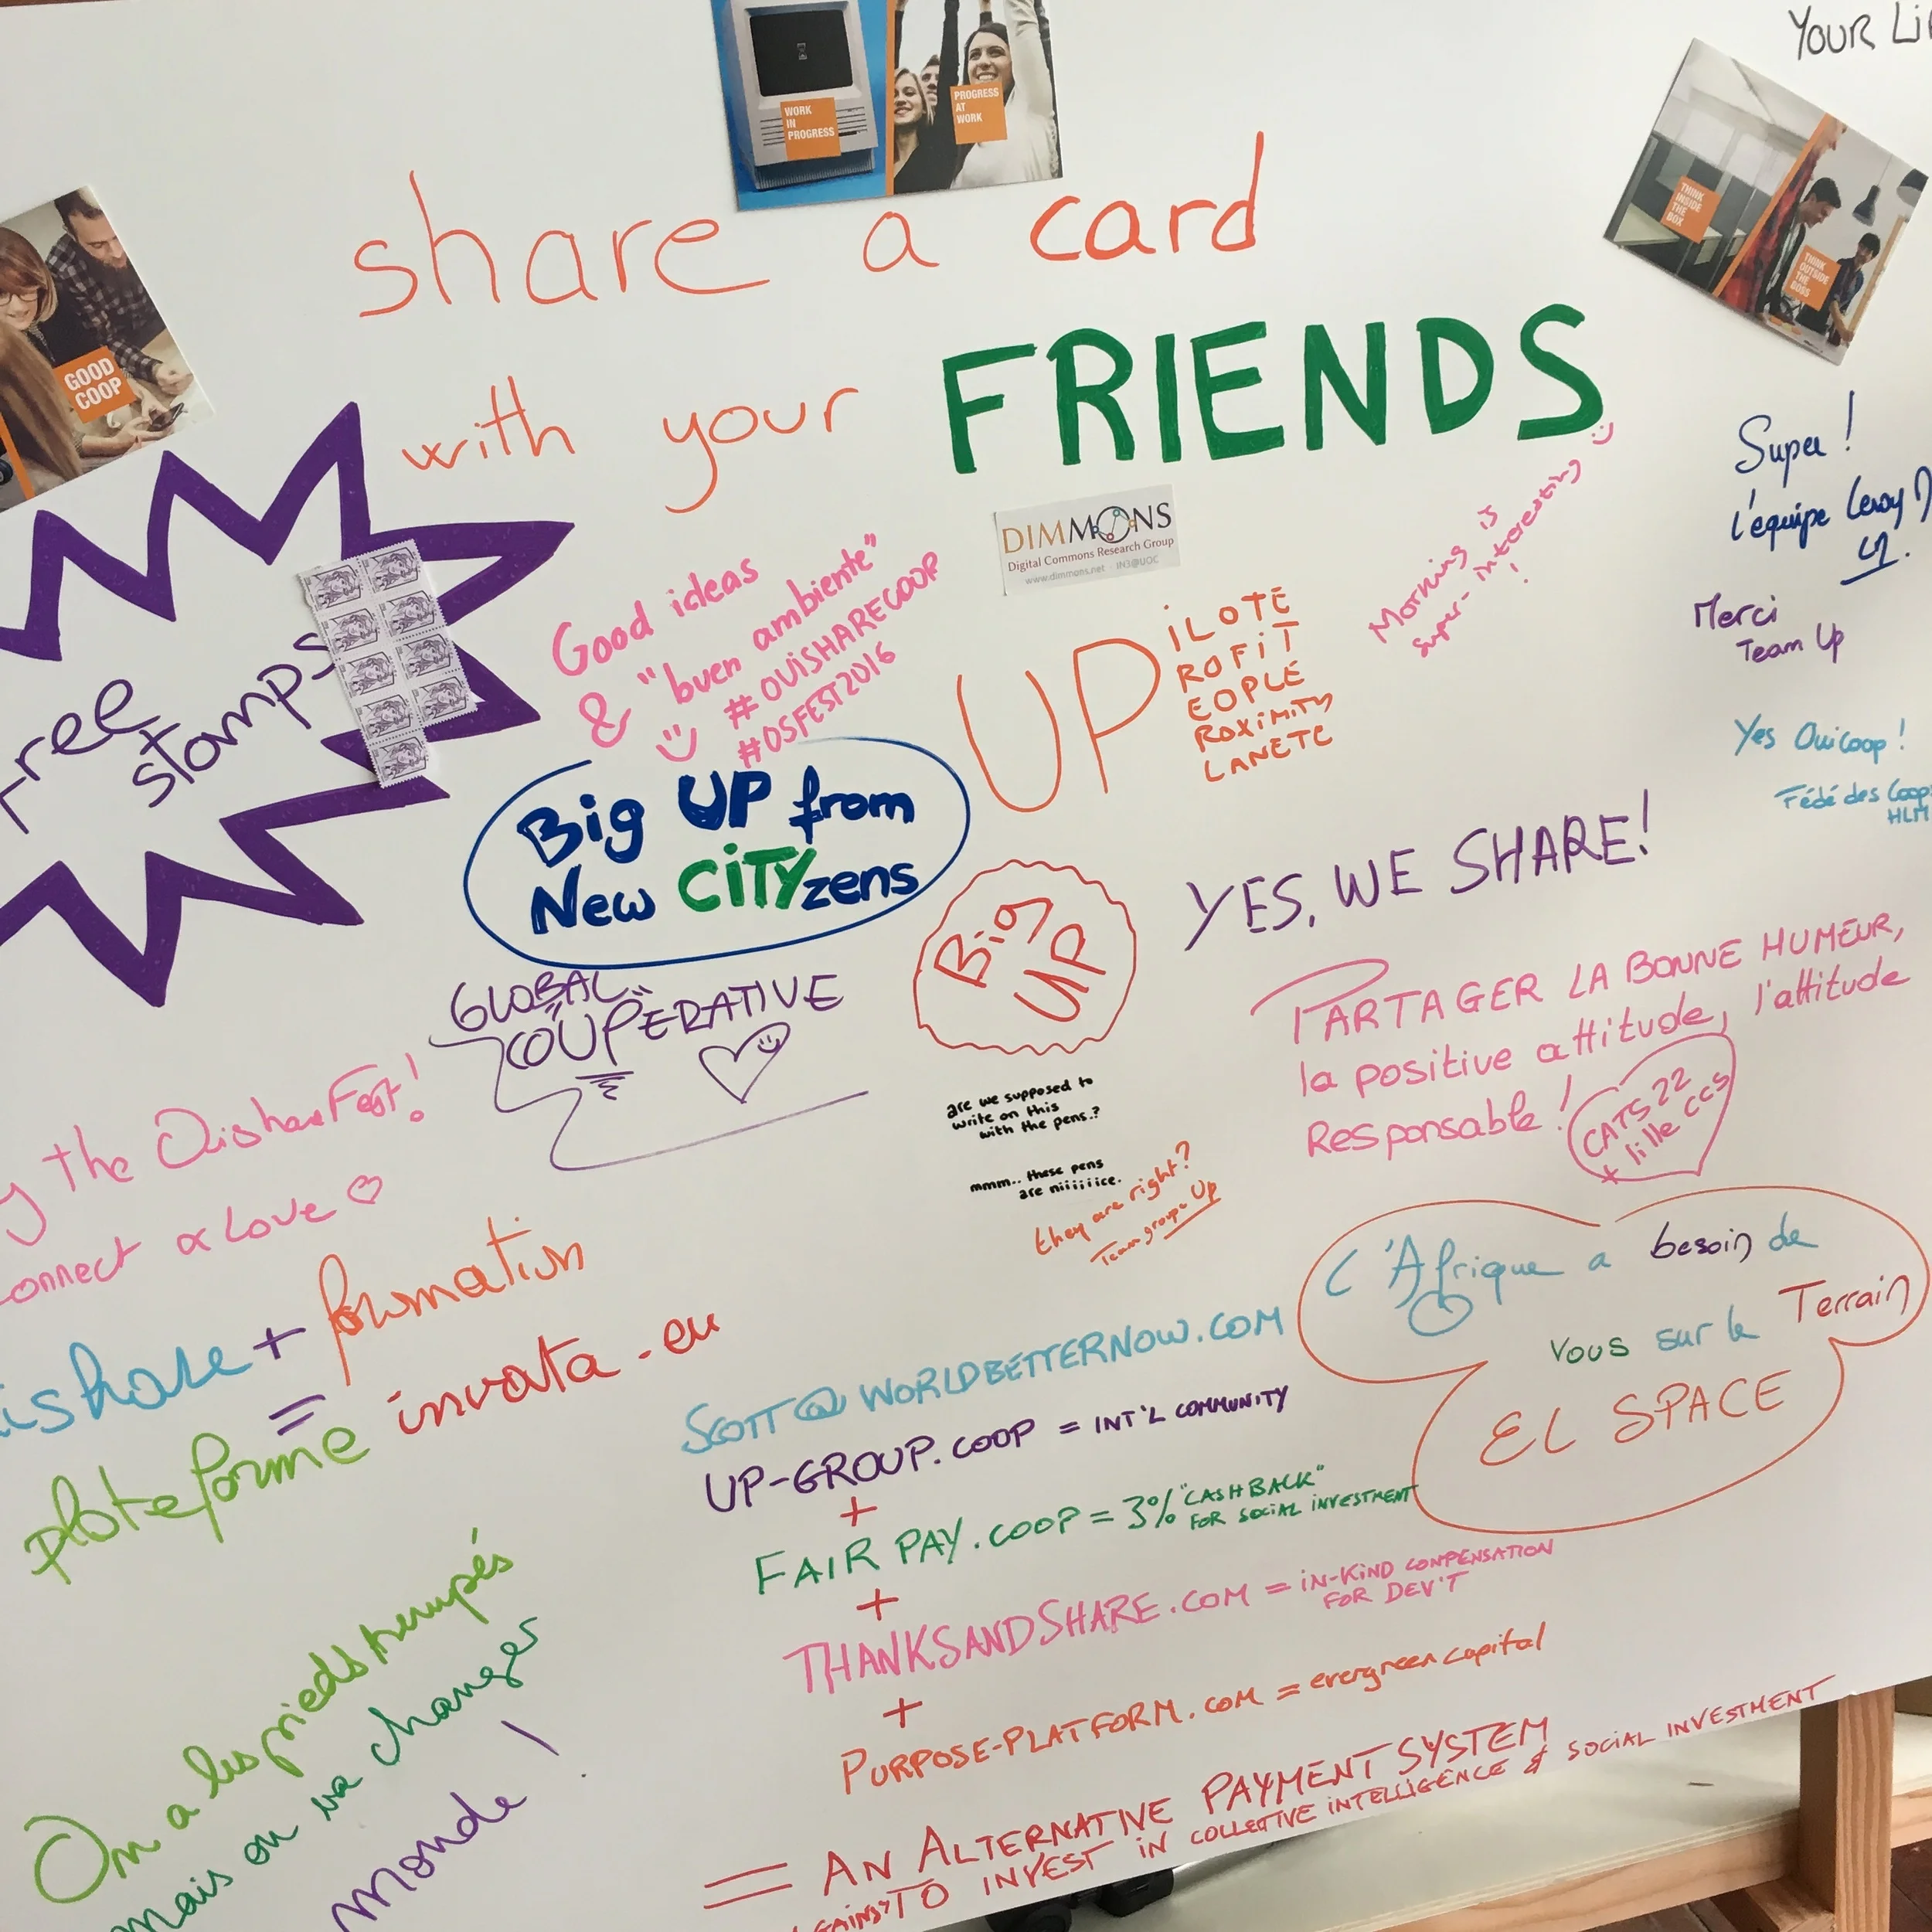 YOUR
WORK
IN
PROGRESS
PROGRESS
AT
WORK
THINK
INSIDE
THE
BOX
THINK
OUTSIDE
THE
BOSS
GOOD
COOP
share a card
with your FRIENDS
Free
stamps
Good ideas
& "buen ambiente"
# OUISHARECOOP
#OSFEST2016
DIMMONS
Digital Commons Research Group
www.dimmons.net · IN3@UOC
Morning is
super-interesting
!
Super !
l'équipe
Merci
Team Up
Yes Ouicoop !
Fédé des Coop
HLM
UP
iLOTE
ROFiT
EOPLE
ROXiMITY
LANETE
Big UP from
New CiTYzens
Big
UP
YES, WE SHARE!
GLOBAL
COUPERATIVE
PARTAGER LA BONNE HUMEUR,
la positive attitude, l'attitude
Responsable !
CATS 22
lille CCS
are we supposed to
write on this
with the pens..?
mmm.. these pens
are niiiiiice.
they are right?
Team groupe Up
the OuishareFest!
Love
ishare + formation
=
plateforme invata.eu
L'Afrique a besoin de
vous sur le Terrain
EL SPACE
SCOTT@WORLDBETTERNOW.COM
UP-GROUP.COOP = INT'L COMMUNITY
+
FAIR PAY.COOP = 3% "CASHBACK"
FOR SOCIAL INVESTMENT
+
THANKSANDSHARE.COM = iN-KiND COMPENSATION
FOR DEV'T
+
PURPOSE-PLATFORM.COM = evergreen capital
= AN ALTERNATIVE PAYMENT SYSTEM
TO INVEST IN COLLECTIVE INTELLIGENCE & SOCIAL INVESTMENT
On a les pieds trempés
mais on va changer
monde !